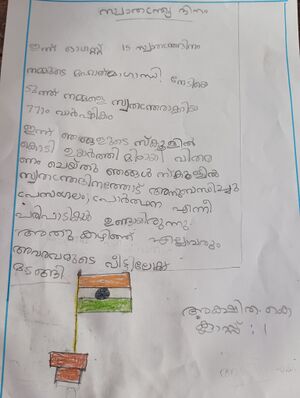 സ്വാതന്ത്ര്യ ദിനം
ഇന്ന് ഓഗസ്റ്റ് 15 സ്വതന്ത്രദിനം
നമ്മുടെ
നമ്മളെ
77ാം വാർഷികം
ഇന്ന് ഞങ്ങളുടെ സ്കൂളിൽ
കൊടി ഉയർത്തി മിഠായി വിതര
ണം ചെയ്തു ഞങ്ങൾ സ്കൂളിൽ
സ്വതന്ത്രദിനത്തോട് അനുബന്ധിച്ചു
പ്രസംഗം, പ്രാർത്ഥന എന്നീ
പരിപാടികൾ ഉണ്ടായിരുന്നു
അതു കഴിഞ്ഞ് എല്ലാവരും
അവരവരുടെ വീട്ടിലേക്ക്
മടങ്ങി
അക്ഷിത കെ
ക്ലാസ്സ് : 1